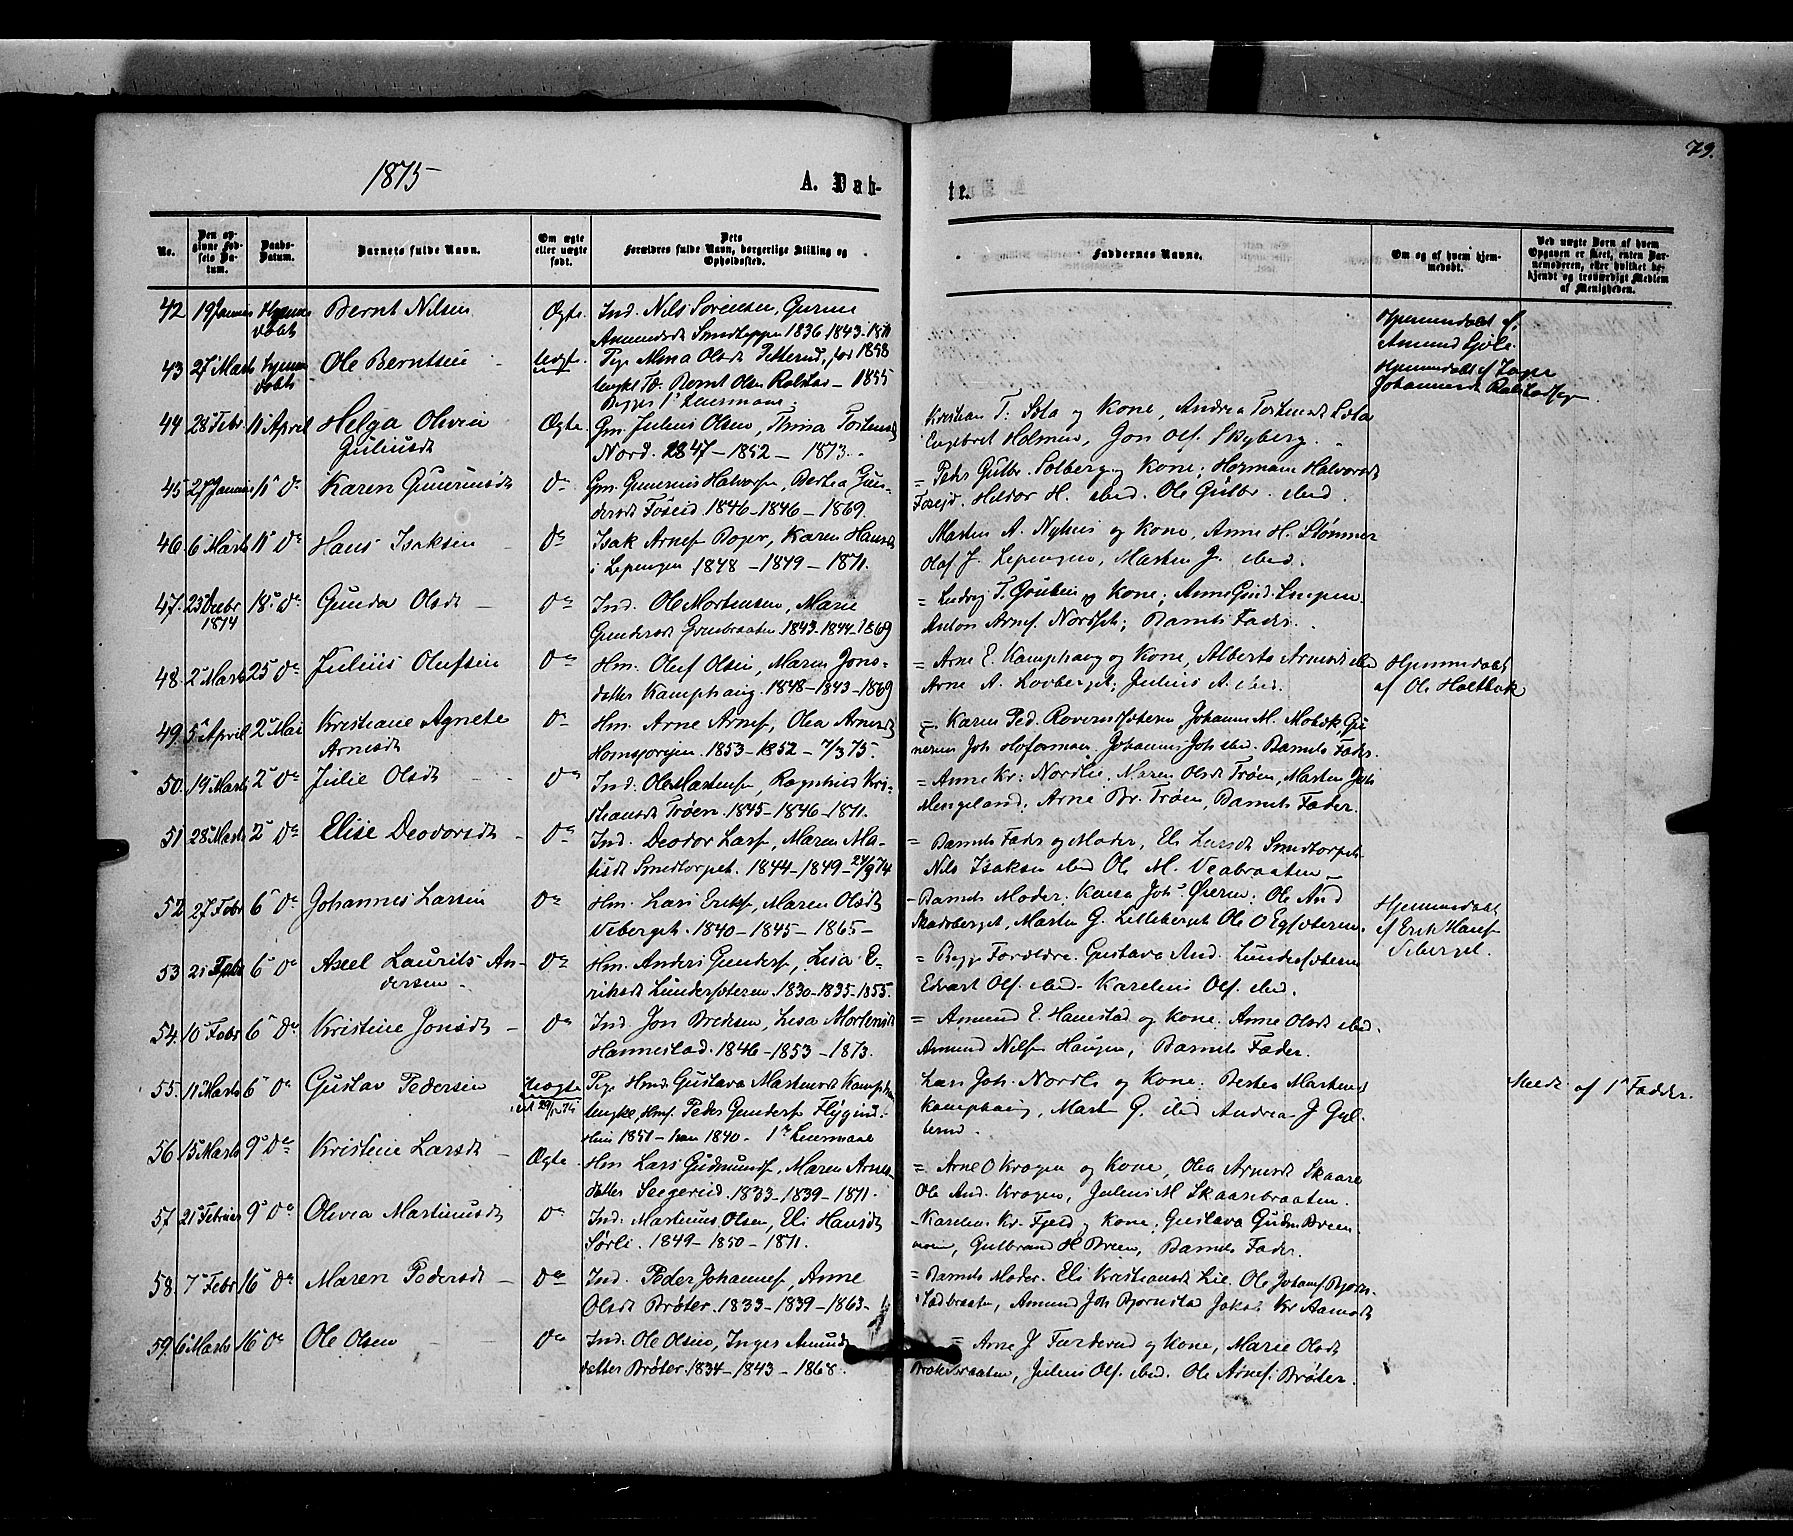 79.
1875
A. Dah-
te.
No.
Den opgivne Fødsels Datum.
Daabs-Datum.
Barnets fulde Navn.
Om ægte eller uægte født.
Dets Forældres fulde Navn, borgerlige Stilling og Opholdssted.
Faddernes Navne.
Om og af hvem hjemmedøbt.
Ved uægte Børn af hvem Opgaven er skeet, enten Barnemoderen, eller hvilket bekjendt og troværdigt Medlem af Menigheden.
42 19 Januar Hjemmedøbt Bernt Nilsen Ægte Ind. Nils Sørensen, Gurine
Amundsdt Smedteppen 1836 1843 1871
Hjemmedøbt af
Amund Gjøle
43 27 Marts hjemmedøbt Ole Berntsen Uægte Pige Alma Olsdt Petterud, før 1858
Ungkl Bernt Olsen Rolstad - 1855
Begges 1ste Leiermaal
Hjemmedøbt af
Johannes Rolstad
44 28 Febr 11 April Helga Olivia
Juliusdt
Ægte Gm. Julius Olsen, Thina Torstensd
Nord. 2847 - 1852 - 1873.
Kristian T. og Kone, Andrea Torstensdt
Engebret Holmen, Jon Ols. Skyberg.
45 27 Januar 11 Do Karen Gunerusdt Do Gm. Gunerus Halvorsen, Berthea Gun-
dersdt Foseid 1846 - 1846 - 1869.
= Peder Gulbr. Solberg og Kone; Hermann Halvorsdt
Foseid. Heldor H. ibid. Ole Gulbr. ibid.
46 6 Marts 11 Do Hans Isaksen Do Isak Arnes. Roger, Karen Hansdt
i Lepengen 1848 - 1849 - 1871.
Martin A. Nyhus og Kone, Anne H. Stømner
Olaf J. Lepengen, Martin J. ibid.
47. 23 Decbr
1874
18 Do Gunda Olsdt Do Ind. Ole Mortensen, Marie
Gundersdt Grinbraaten 1843 - 1844 - 1869
= Ludvig T. og Kone; Anne Gund.
Anton Arnes. Nordset; Barnets Fader.
48. 2 Marts 25 Do Julius Olufsen Do Hm. Oluf Olsen, Maren Jons-
datter Kamphaug. 1848 - 1843 - 1869
= Arne E. Kamphaug og Kone, Alberte Arnesdt ibid
Arne A. Lovberget; Julius A. ibid.
Hjemmedøbt
af Ole Holtbak
49. 5 April 2 Mai Kristiane Agnete
Arnesdt
Do Hm. Arne Arnes, Olea Arnesdt
Homsjorgen. 1853 - 1852 - 7/3 75.
= Karen Ped. Johannes M. Mobæk, Gu-
nerius Joh. Johannes Joh ibid. Barnets Fader.
50. 19 Marts 2 Do Julie Olsdt Do Ind. Ole Martens, Ragnhild Kri-
stiansdt Trøen. 1845 - 1846 - 1871.
= Anne Kr. Nordlie, Maren Olsdt Trøen, Martin Joh
Mengeland; Arne Br. Trøen, Barnets Fader.
51 28 Marts 2 Do Elise Deodorsdt Do Ind. Deodor Lars, Maren Ma-
tisdt Smedtorpet. 1844 - 1849 - 24/9 74
= Barnets Fader og Moder, Eli Larsdt Smedtorpet
Nils Isaksen ibid Ole M. Veabraaten
52 27 Febr 6 Do Johannes Larsen Do Hm. Lars Eriks, Maren Olsdt
Seberget. 1840 - 1845 - 1865 -
- Barnets Moder. Kaisa Joh. Øieren; Ole And
Skadsberget, Martin G. Lilleberget Ole O
Hjemmedøbt
af Erik Hans
Seberget.
53 21 Febr 6 Do Axel Laurits An-
dersen
Do Hm. Anders Gunders, Lisa E-
riksdt Lundersæteren. 1830 - 1835 - 1855.
= Begge Forældre. Gustava And. Lundersæteren
Edvart Ols. ibid. Karelius Ols. ibid.
54. 10 Febr 6 Do Kristine Jonsdt Do Ind. Jon Bredesen, Lisa Mortensdt
Hannestad. 1846 - 1853 - 1873.
= Amund E. Hanestad og Kone. Anne Olsdt ibid.
Amund Nils. Haugen; Barnets Fader.
55. 11 Marts 6 Do Gustav Pedersen Uægte
Pige Hmd. Gustava Martensdt Kamphaug
Ungkl. Hms. Peder Gunders Flygind.
Hun 1851 - han 1840 - 1ste Leiermaal
Lars Joh. Nordli og Kone; Berthea Martensdt
Kamphaug, Martin G. ibid Andreas J Gul-
terud.
Meldt af 1ste Fadder.
56 15 Marts 9 Do Kristine Larsdt Ægte Hm. Lars Gudmunds, Maren Arnes-
datter Seigerud. 1833 - 1839 - 1871.
= Arne O Krogen og Kone, Olea Arnesdt Skaare
Ole And. Krogen, Julius M. Skaarebraaten.
57 21 Februar 9 Do Olivia Martinusdt Do Ind. Martinus Olsen, Eli Hansdt
Sørli. 1849 - 1850 - 1871.
Karelius Kr. Fjeld og Kone; Gustava Gudm Breen
moen, Gulbrand H Breen, Barnets Fader.
58. 7 Febr 16 Do Maren Pedersdt Do Ind. Peder Johannes, Anne
Olsdt Brøter. 1833 - 1839 - 1863.
= Barnets Moder. Eli Kristiansdt Lie. Ole Johans Bjørn-
stadbraaten, Amund Joh Bjørnstad Jakob Kr Aamodt
59. 6 Marts 16 Do Ole Olsen Do Ind. Ole Olsen, Inger Amunds-
datter Brøter. 1834 - 1843 - 1868.
= Arne J Furderud og Kone, Marie Olsdt
Julius Ols. ibid. Ole Arnes. Brøter.